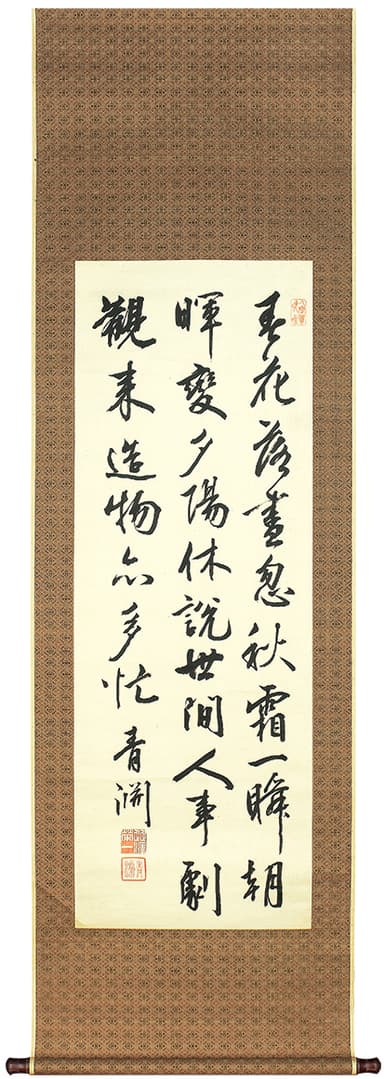 春花落盡忽秋霜一瞬朝
暉變夕陽休説世間人事劇
觀来造物亦多忙 青淵